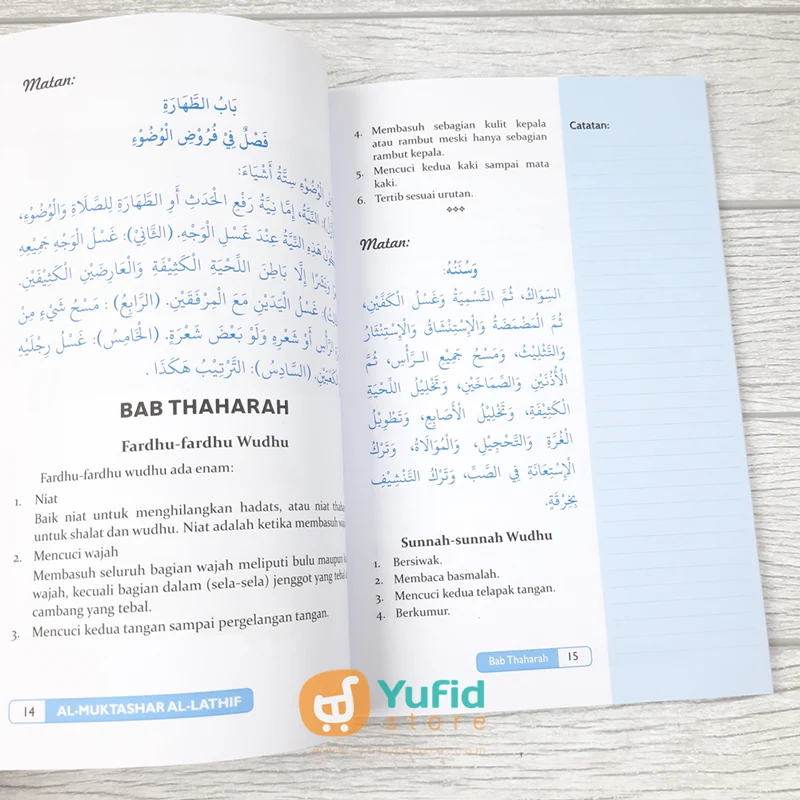 Matan:
بَابُ الطَّهَارَةِ
فَصْلٌ فِيْ فُرُوْضِ الْوُضُوْءِ
الْوُضُوْءِ سِتَّةُ أَشْيَاءَ:
النِّيَّةُ، إِمَّا نِيَّةُ رَفْعِ الْحَدَثِ أَوِ الطَّهَارَةِ لِلصَّلَاةِ وَالْوُضُوْءِ،
هَذِهِ النِّيَّةُ عِنْدَ غَسْلِ الْوَجْهِ. (الثَّانِيْ): غَسْلُ الْوَجْهِ جَمِيْعِهِ
إِلَّا بَاطِنَ اللِّحْيَةِ الْكَثِيْفَةِ وَالْعَارِضَيْنِ الْكَثِيْفَيْنِ.
غَسْلُ الْيَدَيْنِ مَعَ الْمِرْفَقَيْنِ. (الرَّابِعُ): مَسْحُ شَيْءٍ مِنْ
الرَّأْسِ أَوْ شَعْرِهِ وَلَوْ بَعْضَ شَعْرَةٍ. (الْخَامِسُ): غَسْلُ رِجْلَيْهِ
(السَّادِسُ): التَّرْتِيْبُ هَكَذَا.
BAB THAHARAH
Fardhu-fardhu Wudhu
Fardhu-fardhu wudhu ada enam:
1. Niat
Baik niat untuk menghilangkan hadats, atau niat
untuk shalat dan wudhu. Niat adalah ketika membasuh
2. Mencuci wajah
Membasuh seluruh bagian wajah meliputi bulu maupun
wajah, kecuali bagian dalam (sela-sela) jenggot yang tebal
cambang yang tebal.
3. Mencuci kedua tangan sampai pergelangan tangan.
14 AL-MUKTASHAR AL-LATHIF
4. Membasuh sebagian kulit kepala
atau rambut meski hanya sebagian
rambut kepala.
5. Mencuci kedua kaki sampai mata
kaki.
6. Tertib sesuai urutan.
Matan:
وَسُنَنُهُ:
السِّوَاكُ، ثُمَّ التَّسْمِيَةُ وَغَسْلُ الْكَفَّيْنِ،
ثُمَّ الْمَضْمَضَةُ وَالْإِسْتِنْشَاقُ وَالْإِسْتِنْثَارُ
وَالتَّثْلِيْثُ، وَمَسْحُ جَمِيْعِ الـرَّأْسِ، ثُمَّ
الْأُذُنَيْنِ وَالصِّمَاخَيْنِ، وَتَخْلِيْلُ اللِّحْيَةِ
الْكَثِيْفَةِ، وَتَخْلِيْلُ الْأَصَابِعِ، وَتَطْوِيْلُ
الْغُرَّةِ وَالتَّحْجِيْلِ، وَالْمُوَالَاةُ، وَتَرْكُ
الْإِسْتِعَانَةِ فِي الصَّبِّ، وَتَرْكُ التَّنْشِيْفِ
بِخِرْقَةٍ.
Sunnah-sunnah Wudhu
1. Bersiwak.
2. Membaca basmalah.
3. Mencuci kedua telapak tangan.
4. Berkumur.
Bab Thaharah 15
Catatan:
Yufid
store